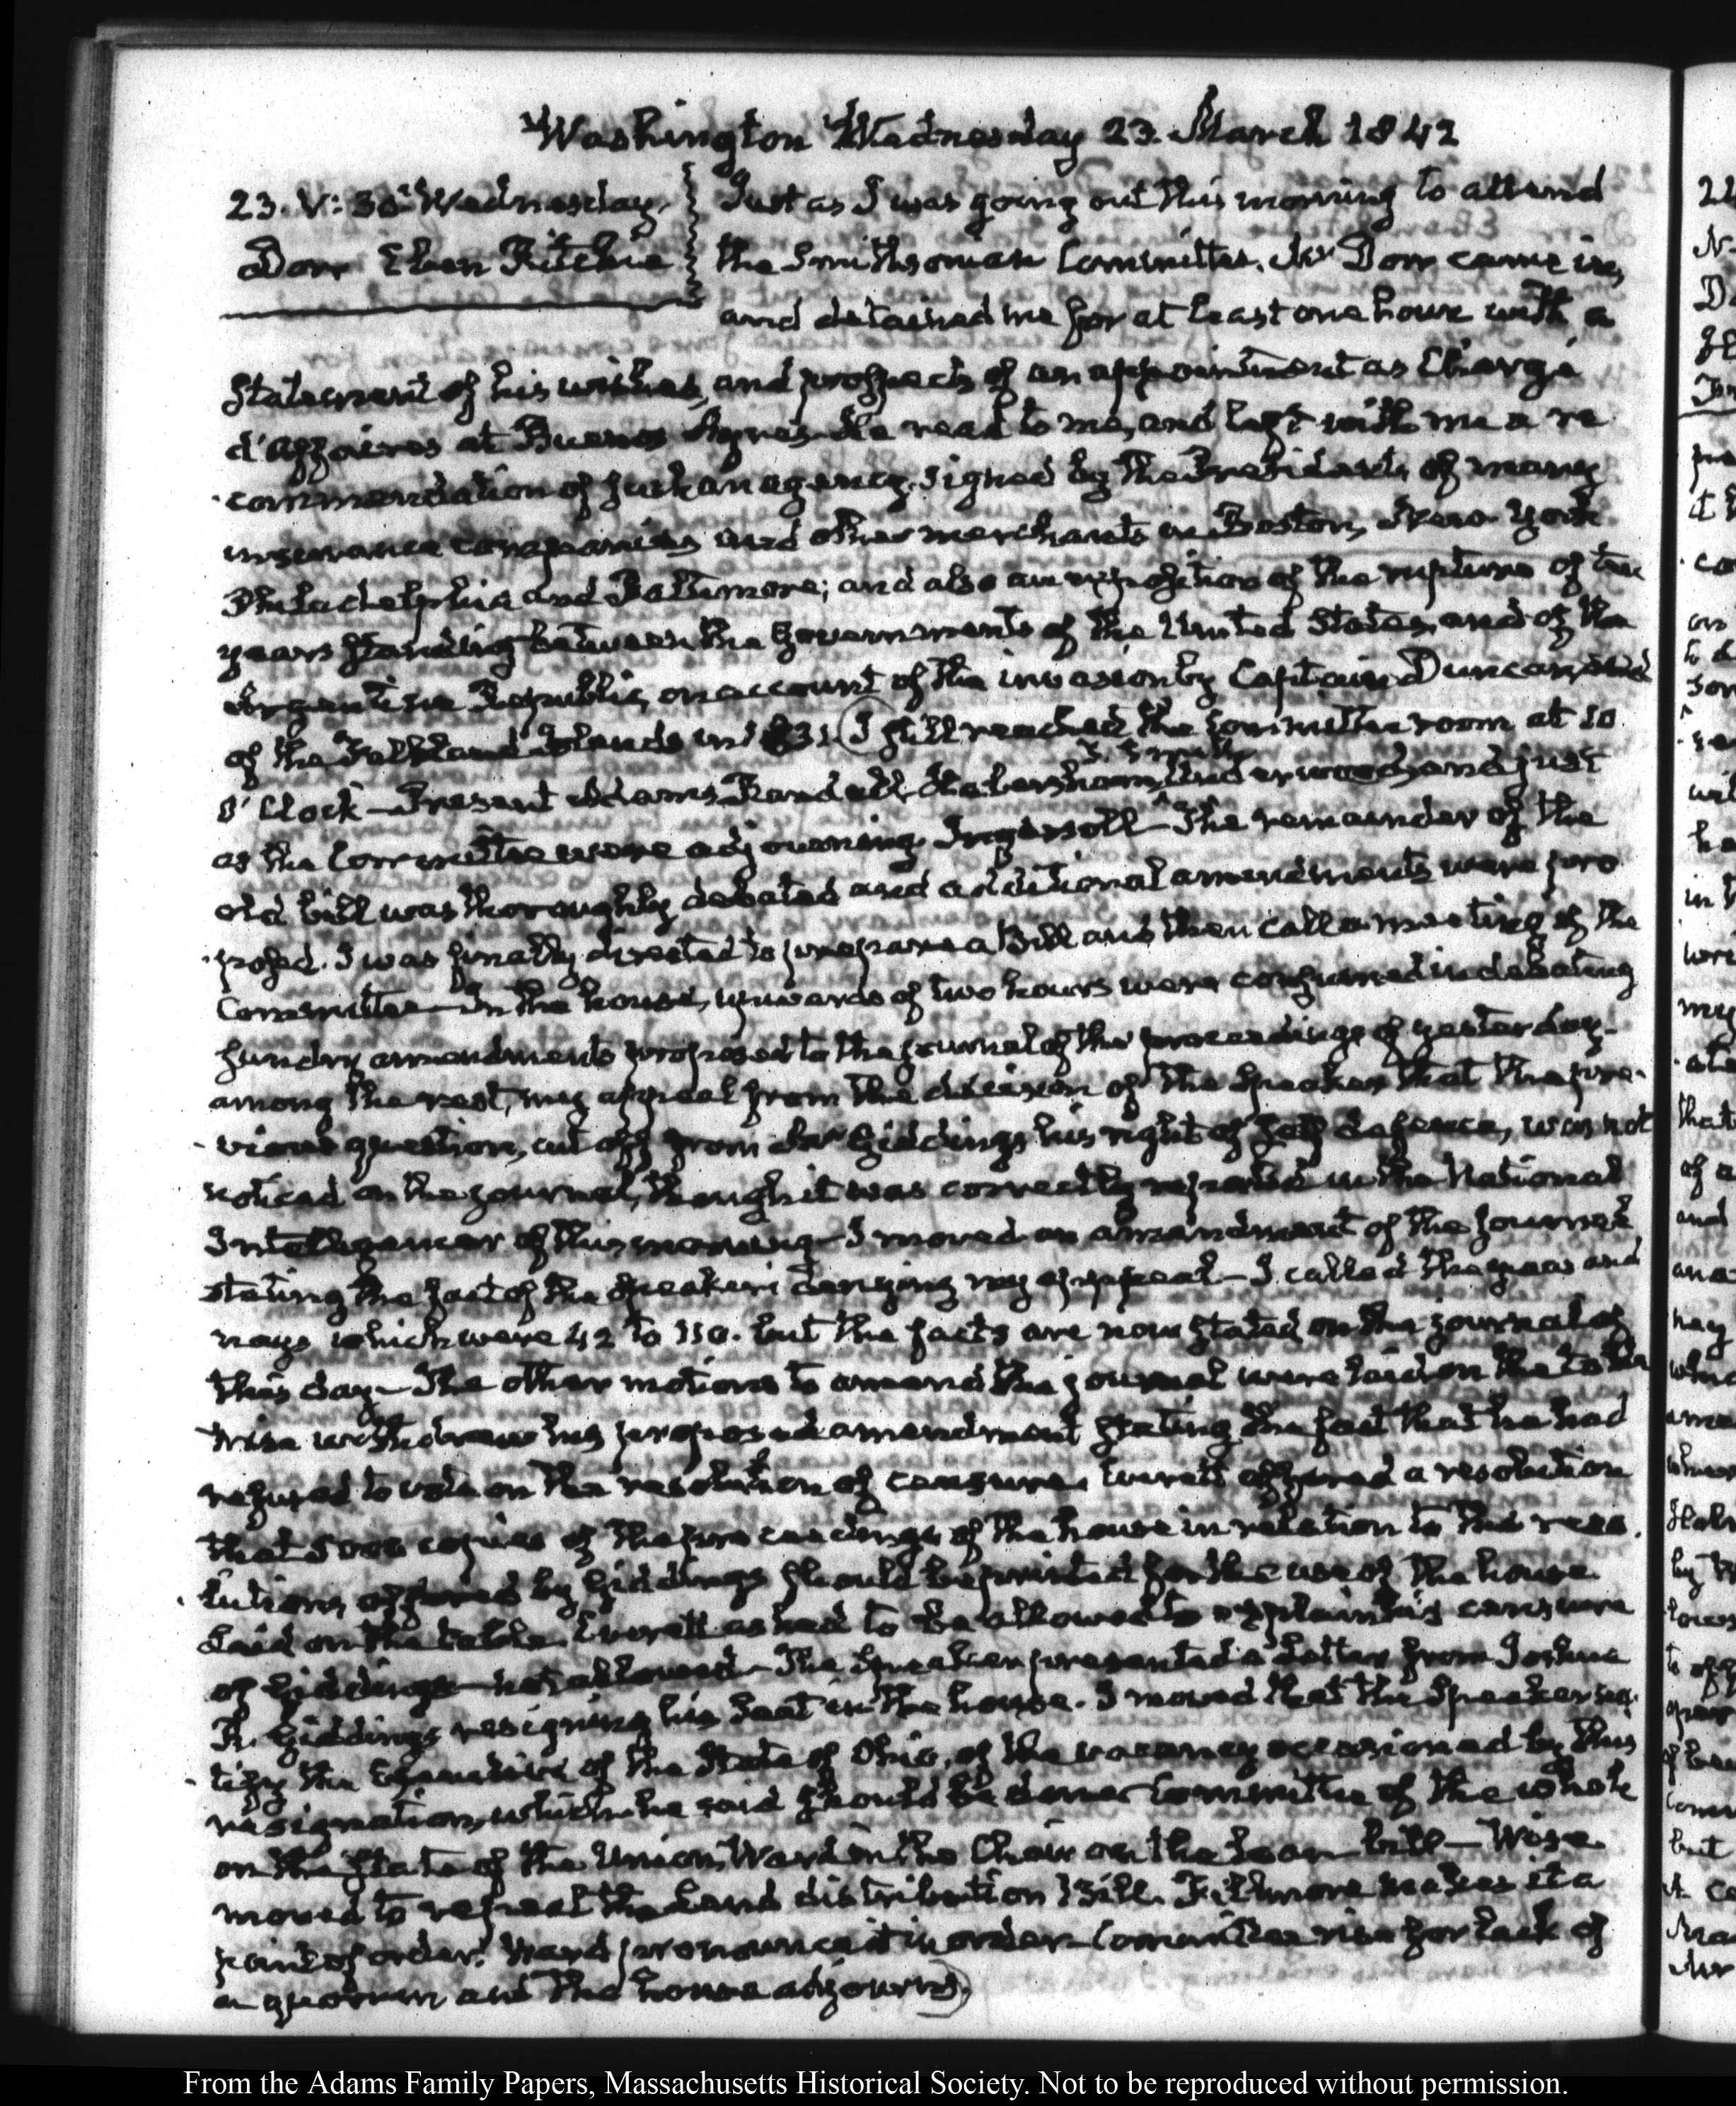 Washington Wednesday 23. March 1842
23. V: 30. Wednesday.
Dorr Eben Ritchie
Just as I was going out this morning to attend
the Smithsonian Committee. Mr Dorr came in,
and detained me for at least one hour with a
Statement of his wishes, and prospects of an appointment as Chargé
d'Affaires at Buenos Ayres. He read to me, and left with me a re
commendation of such an agency, signed by the Presidents of many
insurance companies and other merchants in Boston, New York
Philadelphia and Baltimore; and also an exposition of the rupture of ten
years standing between the Governments of the United States, and of the
Argentine Republic, on account of the invasion by Captain Duncan
of the Falkland Islands in 1831. I still reached the Committee room at 10
O'Clock – Present Adams, Randall, Habersham, Underwood, and just
T. Smith
as the Committee were adjourning. Ingersoll – The remainder of the
old bill was thoroughly debated and additional amendments were pro
posed. I was finally directed to prepare a Bill and then call a meeting of the
Committee – In the house, upwards of two hours were consumed in debating
sundry amendments proposed to the journal of the proceedings of yesterday –
among the rest, my appeal from the decision of the Speaker that the pre-
vious question, cut off from Mr Giddings his right of self defence, was not
noticed on the journal, though it was correctly reported in the National
Intelligencer of this morning – I moved an amendment of the Journal
stating the fact of the Speaker's denying my appeal – I called the yeas and
nays which were 42 to 110. but the facts are now stated on the journal of
this day – The other motions to amend the journal were laid on the table
Wise withdrew his proposed amendment stating the fact that he had
refused to vote on the resolution of censure. Everett offered a resolution
that 5000 copies of the proceedings of the house in relation to the reso
lutions offered by Giddings should be printed for the use of the house
Laid on the table. Everett asked to be allowed to explain his censure
of Giddings – not allowed – The Speaker presented a Letter from Joshua
R. Giddings resigning his Seat in the house. I moved that the Speaker no
tify the Executive of the State of Ohio, of the vacancy occasioned by this
resignation, which he said should be done – Committee of the whole
on the State of the Union, Ward in the Chair on the Loan bill – Wise
moved to repeal the Land distribution Bill. Fillmore makes it a
point of order. Ward pronounces it in order – Committee rise for lack of
a quorum and the house adjourn.
From the Adams Family Papers, Massachusetts Historical Society. Not to be reproduced without permission.